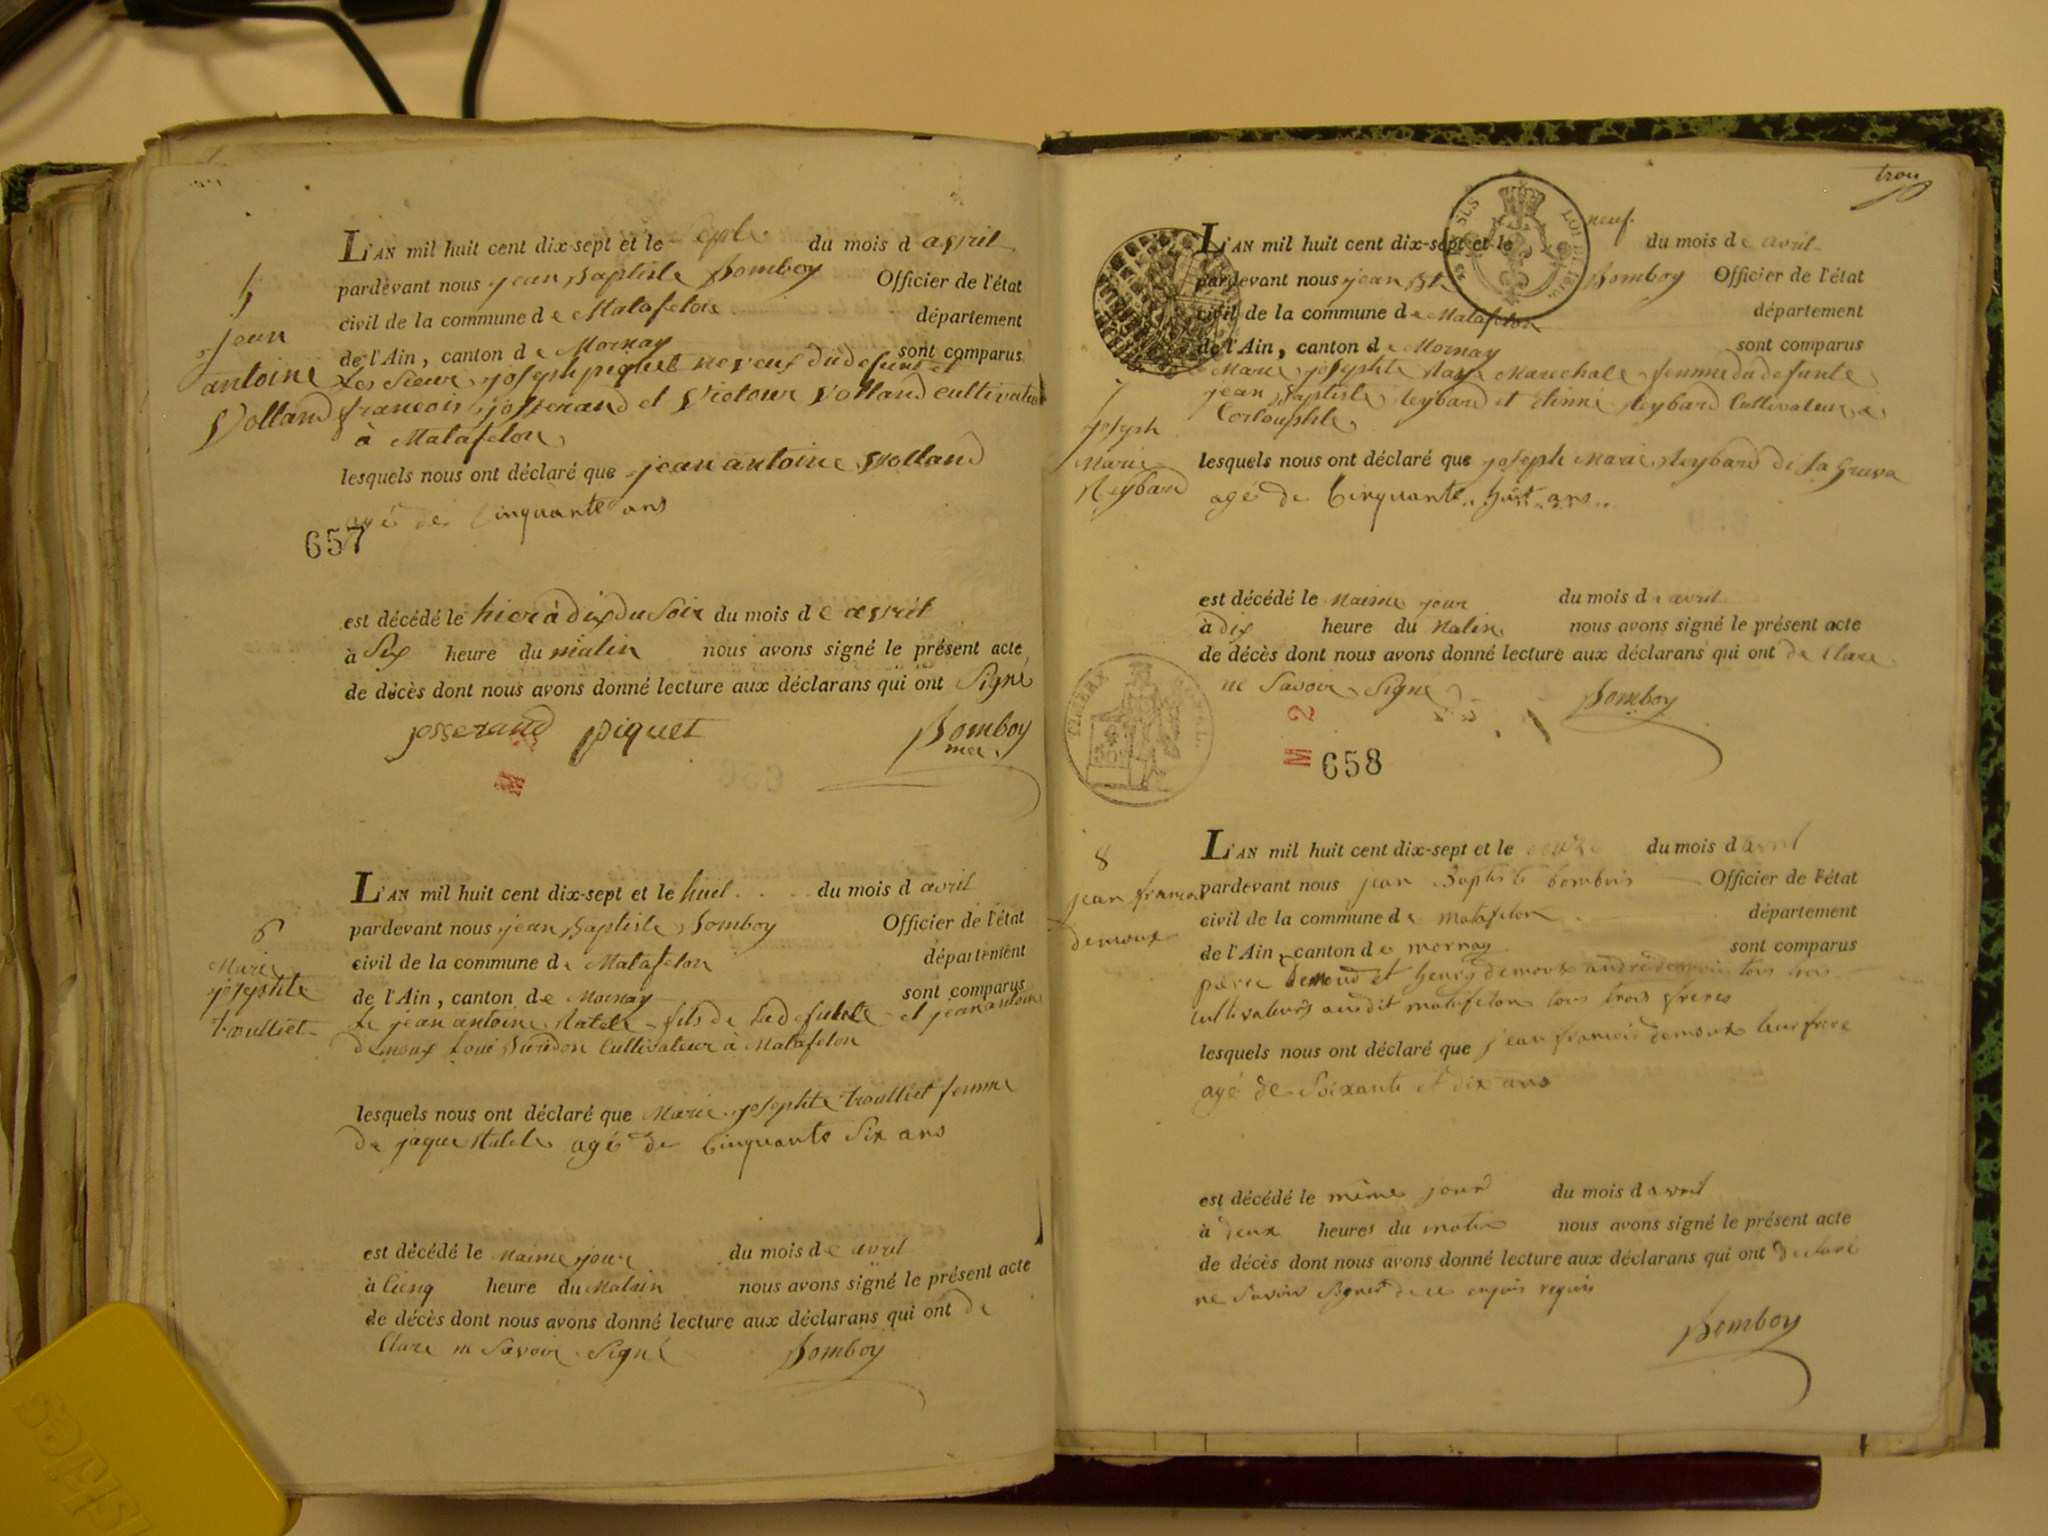 5
jean
antoine
Volland
L'AN mil huit cent dix-sept et le Sept du mois d avril
pardevant nous jean Baptiste Bomboy Officier de l'état
civil de la commune de Matafelon département
de l'Ain, canton de Mornay sont comparus
Les Sieur joseph piquet neveux du defunt et
francois josserand et Victour Volland cultivateur
à Matafelon
lesquels nous ont déclaré que jean antoine Volland
agé de Cinquante ans
657
est décédé le hier à dix du Soir du mois de avril
à Six heure du matin nous avons signé le présent acte
de décès dont nous avons donné lecture aux déclarans qui ont Signé
josserand piquet Bomboy
M mer
6
Marie
josephte
troulliet
L'AN mil huit cent dix-sept et le huit du mois d avril
pardevant nous jean Baptiste Bomboy Officier de l'état
civil de la commune de Matafelon département
de l'Ain, canton de Mornay sont comparus
Le jean antoine fils de La defunte et jean antoine
demoux Cultivateur à Matafelon
lesquels nous ont déclaré que Marie josephte troulliet femme
de jaque agé de Cinquante Six ans
est décédé le maime jour du mois de avril
à Cienq heure du Matin nous avons signé le présent acte
de décès dont nous avons donné lecture aux déclarans qui ont de
Clare ne Savoir Signé Bomboy
trois
7
joseph
Marie
Reybard
L'AN mil huit cent dix-sept et le neuf du mois de avril
pardevant nous jean Bte Bomboy Officier de l'état
civil de la commune de Matafelon département
de l'Ain, canton de Mornay sont comparus
Marie josephte Marechale femme du defunte
jean Baptiste Reybard et Etinne Reybard Cultivateur a
lesquels nous ont déclaré que joseph Marie Reybard de la Gruva
agé de Cinquante huit ans
est décédé le maime jour du mois de avril
à dix heure du Matin nous avons signé le présent acte
de décès dont nous avons donné lecture aux déclarans qui ont de Clare
ne Savoir Signe Bomboy
M 2
658
8
jean francois
demoux
L'AN mil huit cent dix-sept et le du mois d avril
pardevant nous jean Baptiste bombois Officier de l'état
civil de la commune de matafelon département
de l'Ain, canton de mornay sont comparus
pierre demoud et henry demoux andré demoux tous trois
cultivateurs audit matafelon tous trois freres
lesquels nous ont déclaré que jean francois demoux leur frere
agé de Soixante et dix ans
est décédé le même jour du mois d avril
à deux heures du matin nous avons signé le présent acte
de décès dont nous avons donné lecture aux déclarans qui ont declaré
ne Savoir Signer de ce enquis requis
Bomboy